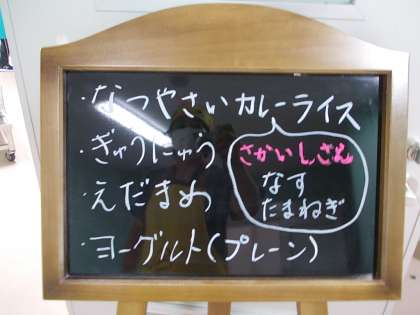 ・なつやさいカレーライス
・ぎゅうにゅう
さかいしさん
なす
たまねぎ
・えだまめ
・ヨーグルト(プレーン)